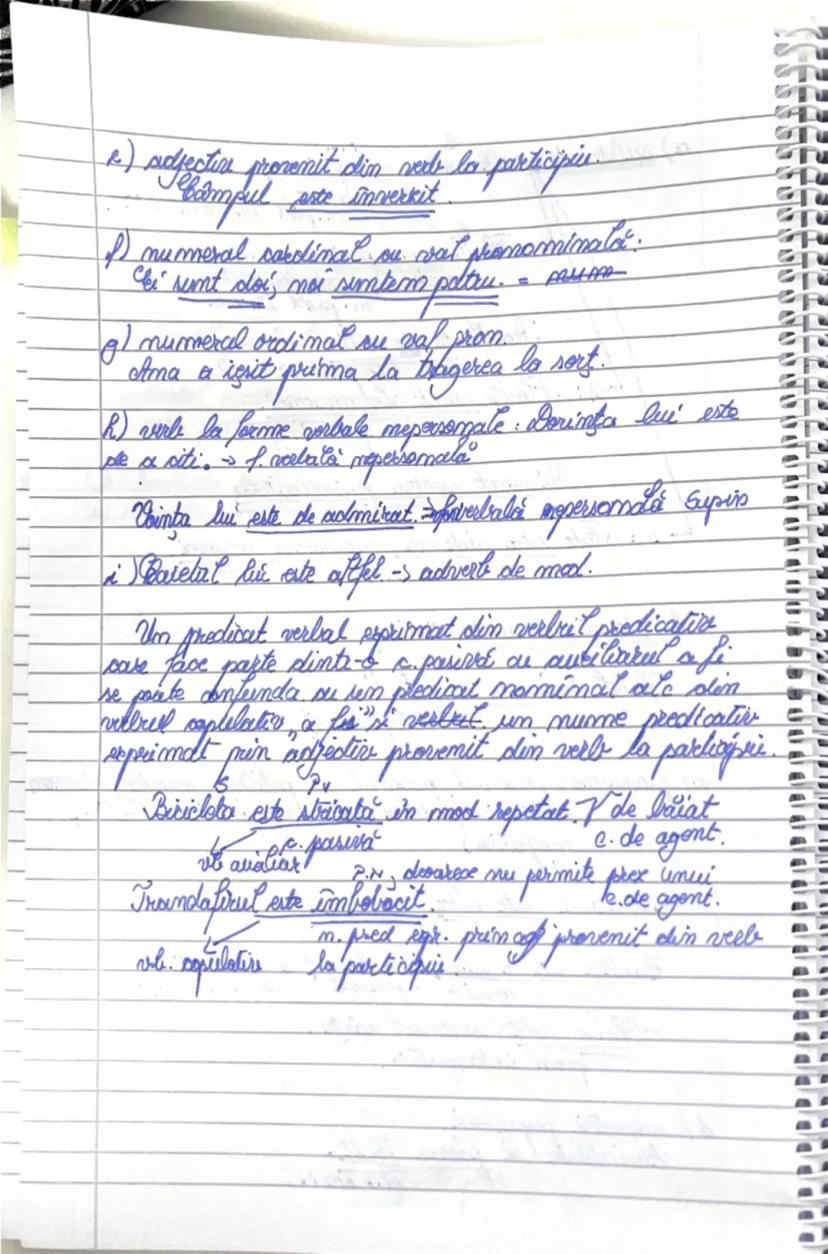 e) adjectiv provenit din verb la participiu.
Câmpul este înverzit
f) numeral cardinal cu val pronominală:
Ei sunt doi, noi suntem patru. = num
g) numeral ordinal cu val pron.
Ana a ieșit prima la tragerea la sorț.
h) verb la forme verbale nepersonale: Dorința lui este
de a citi. → f. verbală nepersonală
Voința lui este de admirat. → f. verbală nepersonală Supin
i) Băiatul lui este altfel → adverb de mod.
Un predicat verbal exprimat din verbul predicativ
care face parte dintr-o c. pasivă cu auxiliarul a fi
se poate confunda cu un predicat nominal alc din
verbul copulativ „a fi" și verbul un nume predicativ
exprimat prin adjectiv provenit din verb la participiu.
S P.V
Bicicleta este stricată în mod repetat. V de băiat
c. pasivă c. de agent.
vb auxiliar
P.N, deoarece nu permite prez unui
Trandafirul este îmbobocit. c. de agent.
n. pred egr. prin adj provenit din verb
vb. copulativ la participiu